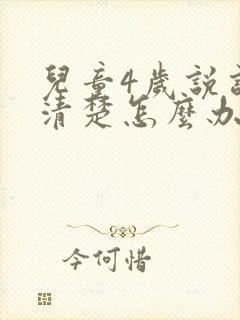 兒童4歲說
清楚怎麼办
今何惜